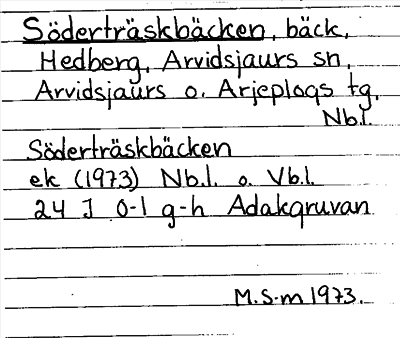 Södertäskbäcken, bäck,
Hedberg, Arvidsjaurs sn,
Arvidsjaurs o. Arjeplogs tg,
Nb.l.
Söderträskbäcken
ek (1973) Nb.l. o. Vb.l.
24 J 0-1 g-h Adakgruvan
M.S-m 1973.